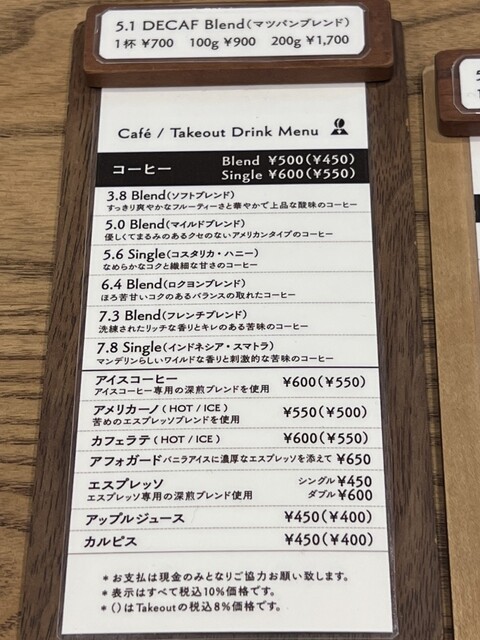 5.1 DECAF Blend(マツパンブレンド)
1杯 ¥700 100g ¥900 200g ¥1,700
Café / Takeout Drink Menu
コーヒー
Blend ¥500(¥450)
Single ¥600(¥550)
3.8 Blend(ソフトブレンド)
すっきり爽やかなフルーティーさと華やかで上品な酸味のコーヒー
5.0 Blend(マイルドブレンド)
優しくてまるみのあるクセのないアメリカンタイプのコーヒー
5.6 Single(コスタリカ・ハニー)
なめらかなコクと繊細な甘さのコーヒー
6.4 Blend(ロクヨンブレンド)
ほろ苦甘いコクのあるバランスの取れたコーヒー
7.3 Blend(フレンチブレンド)
洗練されたリッチな香りとキレのある苦味のコーヒー
7.8 Single(インドネシア・スマトラ)
マンデリンらしいワイルドな香りと刺激的な苦味のコーヒー
アイスコーヒー ¥600(¥550)
アイスコーヒー専用の深煎ブレンドを使用
アメリカーノ(HOT / ICE) ¥550(¥500)
苦めのエスプレッソブレンドを使用
カフェラテ(HOT / ICE) ¥600(¥550)
アフォガード バニラアイスに濃厚なエスプレッソを添えて ¥650
エスプレッソ シングル ¥450
エスプレッソ専用の深煎ブレンド使用 ダブル ¥600
アップルジュース ¥450(¥400)
カルピス ¥450(¥400)
* お支払は現金のみとなりご協力お願い致します。
* 表示はすべて税込10%価格です。
* ()はTakeoutの税込8%価格です。